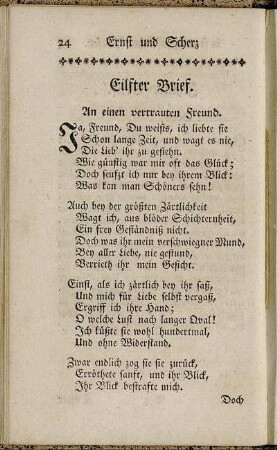 24 Ernst und Scherz
Eilfter Brief.
An einen vertrauten Freund.
Ja, Freund, Du weißts, ich liebte sie
Schon lange Zeit, und wagt es nie,
Die Lieb' ihr zu gestehn.
Wie günstig war mir oft das Glück;
Doch seufzt ich nur bey ihrem Blick:
Was kan man Schöners sehn!
Auch bey der größten Zärtlichkeit
Wagt ich, aus blöder Schichternheit,
Ein frey Geständniß nicht.
Doch was ihr mein verschwiegner Mund,
Bey aller Liebe, nie gestund,
Verrieth ihr mein Gesicht.
Einst, als ich zärtlich bey ihr saß,
Und mich für Liebe selbst vergaß,
Ergriff ich ihre Hand;
O welche Lust nach langer Qval!
Ich küßte sie wohl hundertmal,
Und ohne Widerstand.
Zwar endlich zog sie sie zurück,
Erröthete sanft, und ihr Blick,
Ihr Blick bestrafte mich.
Doch